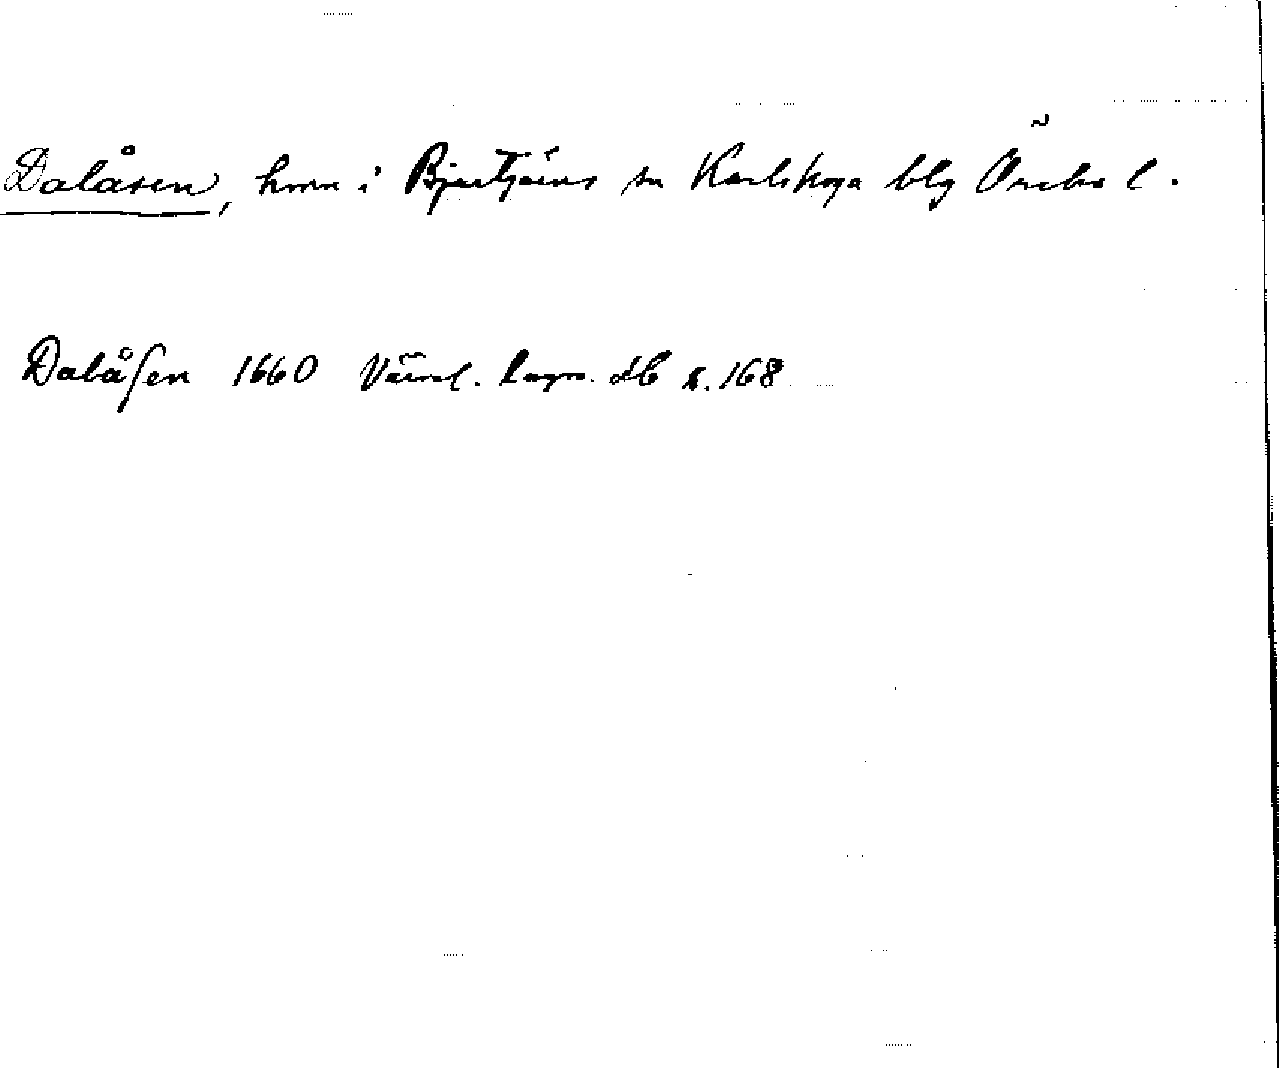 Dalåsen, hmn i Bjurtjärns sn Karlskoga blg Örebro l.
Dalåsen 1660 Värml. lagm. db s. 168